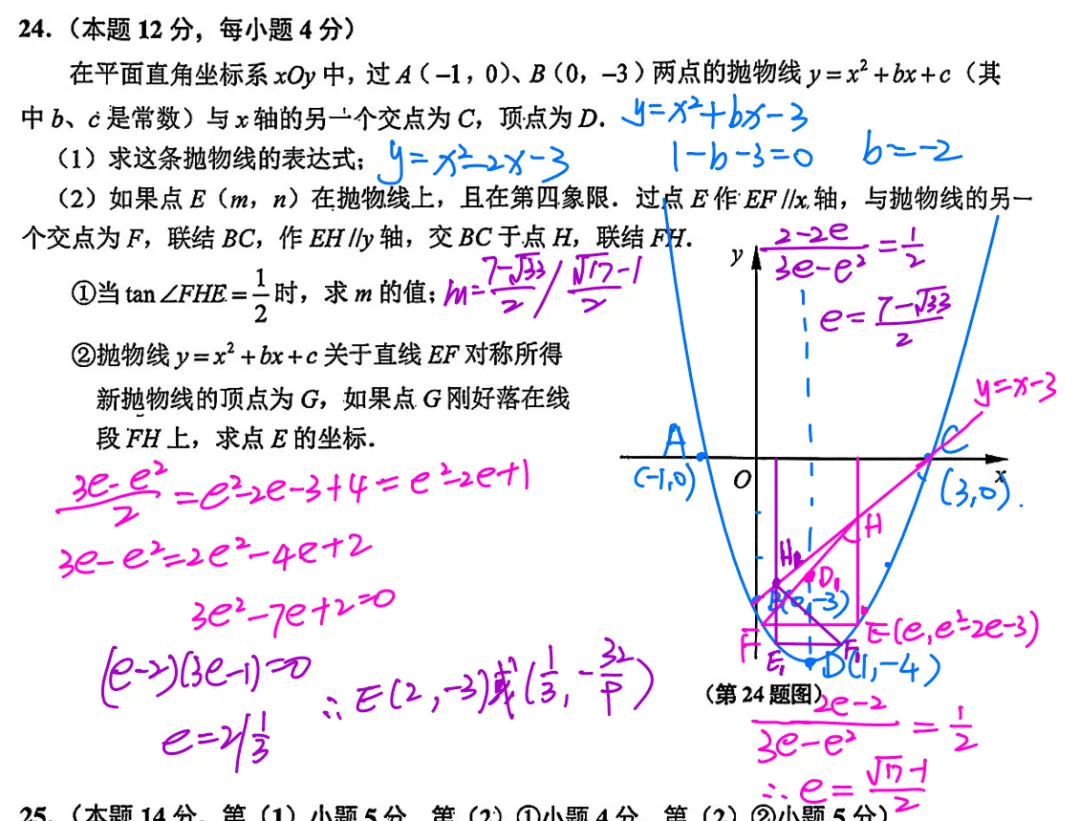 24.（本题 12 分，每小题 4 分）
在平面直角坐标系 xOy 中，过 A（−1，0）、B（0，−3）两点的抛物线 y = x² + bx + c（其
中 b、c 是常数）与 x 轴的另一个交点为 C，顶点为 D．
y=x²+bx-3
（1）求这条抛物线的表达式；
y=x²-2x-3
1-b-3=0
b=-2
（2）如果点 E（m，n）在抛物线上，且在第四象限．过点 E 作 EF // x 轴，与抛物线的另一
个交点为 F，联结 BC，作 EH // y 轴，交 BC 于点 H，联结 FH．
①当 tan∠FHE = 1/2 时，求 m 的值；
m= (7-√33)/2 / (√17-1)/2
②抛物线 y = x² + bx + c 关于直线 EF 对称所得
新抛物线的顶点为 G，如果点 G 刚好落在线
段 FH 上，求点 E 的坐标．
(2-2e)/(3e-e²) = 1/2
e= (7-√33)/2
y
y=x-3
A
C
(-1,0)
O
(3,0).
x
H
H₂
D₁
B(0,-3)
F
E(e,e²-2e-3)
E₁
F₁
D(1,-4)
（第 24 题图）
(3e-e²)/2 = e²-2e-3+4 = e²-2e+1
3e-e²=2e²-4e+2
3e²-7e+2=0
(e-2)(3e-1)=0
e=2/ 1/3
∴E(2,-3)或(1/3,-32/9)
(2e-2)/(3e-e²) = 1/2
∴e= (√17-1)/2
25.（本题 14 分，第（1）小题 5 分，第（2）①小题 4 分，第（2）②小题 5 分）